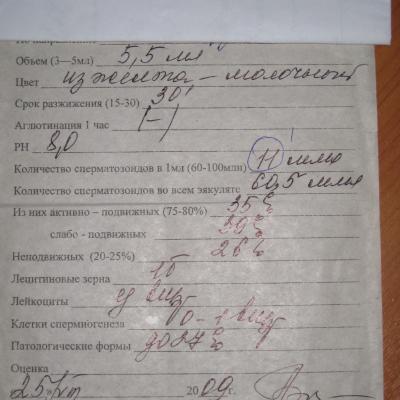 По направлению
Объем (3—5мл) 5,5 мл
Цвет изжелта - молочный
Срок разжижения (15-30) 30'
Аглютинация 1 час (-)
РН 8,0
Количество сперматозоидов в 1мл (60-100млн) 11 млн
Количество сперматозоидов во всем эякуляте 60,5 млн
Из них активно – подвижных (75-80%) 35%
слабо - подвижных 39%
Неподвижных (20-25%) 26%
Лецитиновые зерна
Лейкоциты ед в п/зр
Клетки спермиогенеза 0-1 в п/зр
Патологические формы до 27%
Оценка
25 2009г.